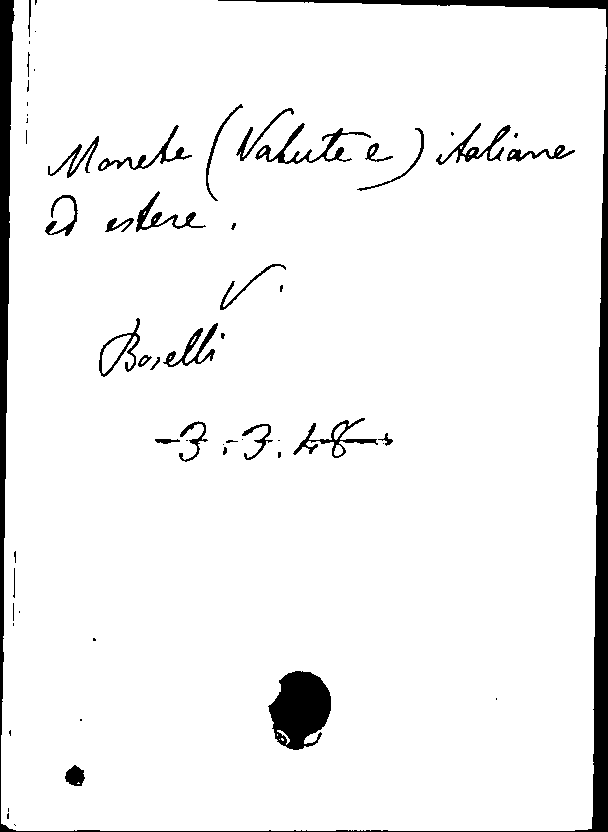 Monete (Valute e) italiane
ed estere.
V.
Boselli
3.3.48